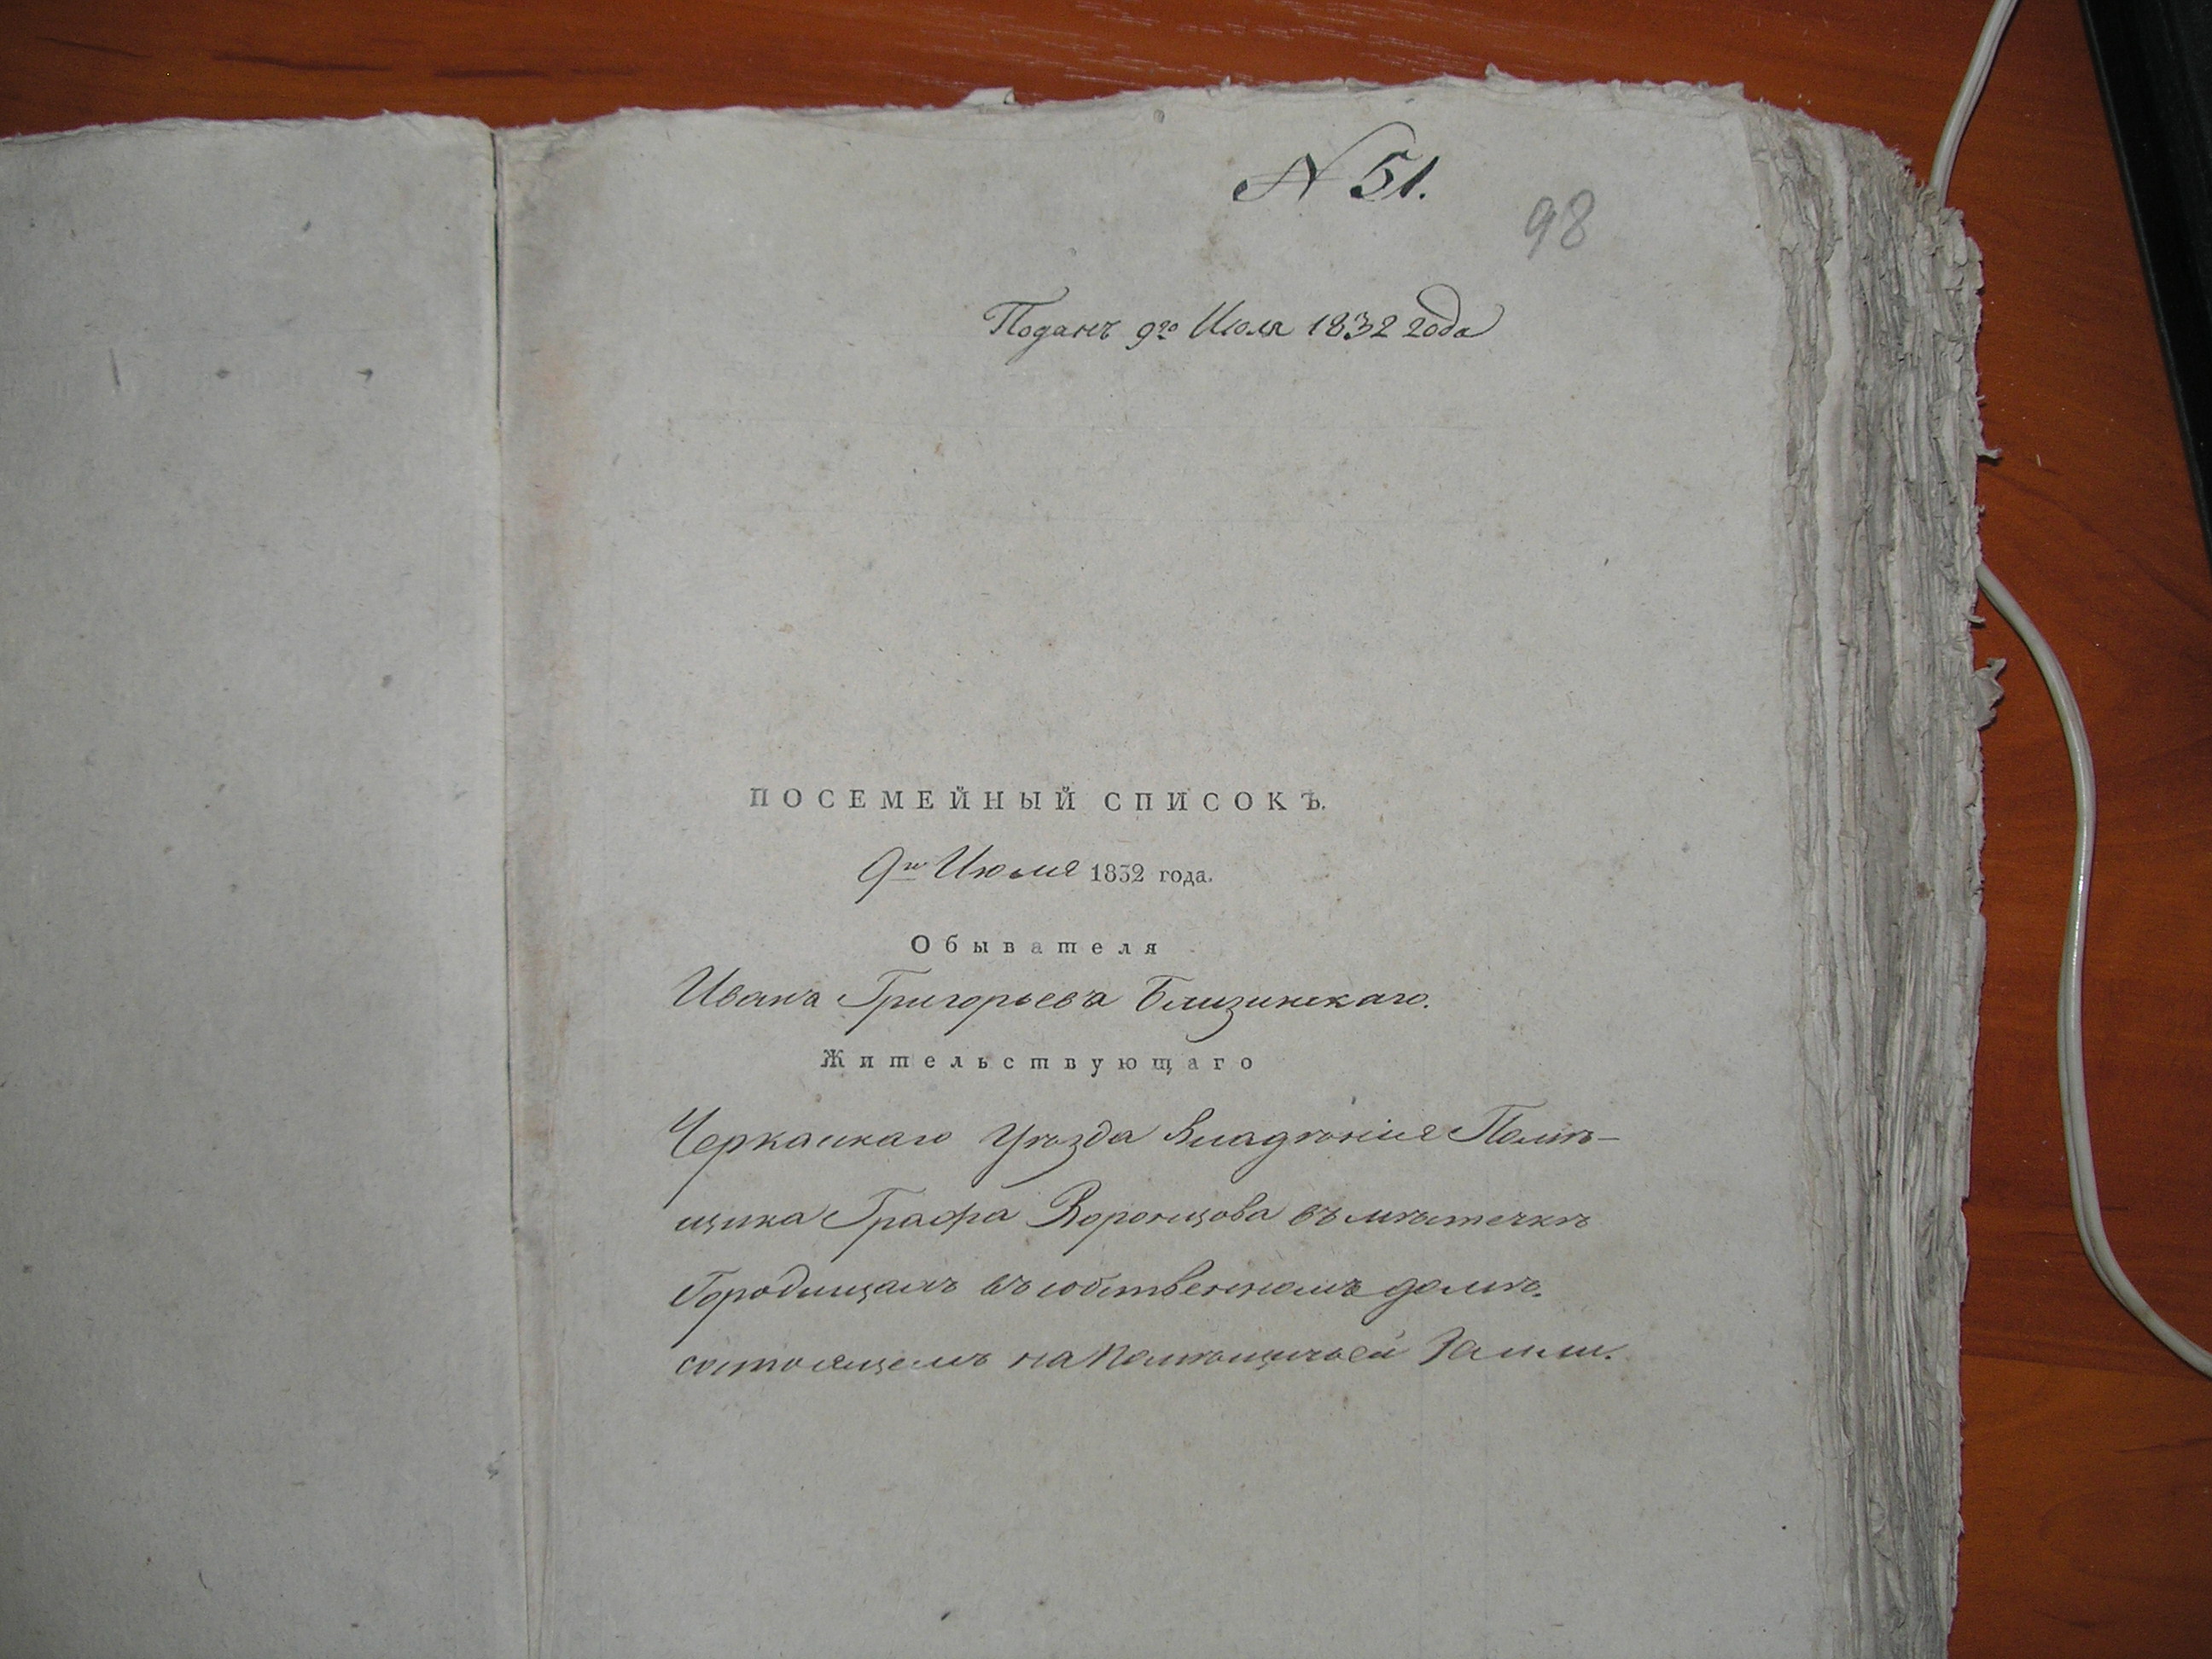 N 51.
98
Поданъ 9го Июля 1832 года
ПОСЕМЕЙНЫЙ СПИСОКЪ.
9го Июля 1832 года.
Обывателя
Ивана Григорьева Близинскаго.
Жительствующаго
Черкаскаго Уѣзда владѣнія Помѣ-
щика Графа Воронцова въ мѣстечкѣ
Городищахъ въ собственномъ домѣ.
состоящемъ на Помѣщичьей Земли.